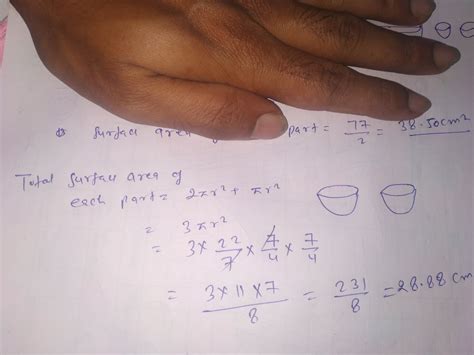 Surface area part = 77/2 = 38.50cm²
Total Surface area of
each part = 2πr² + πr²
= 3πr²
= 3 × 22/7 × 7/4 × 7/4
= 3×11×7/8 = 231/8 = 28.88 cm